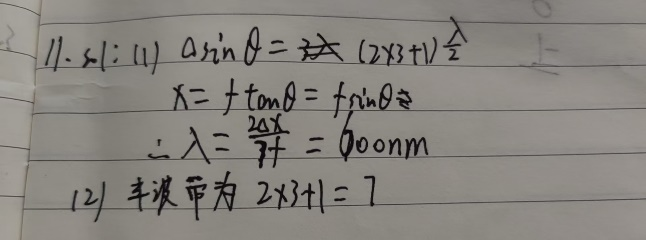 11. sol: (1) a sin θ = (2×3+1) λ/2
x = f tanθ = f sinθ
∴ λ = 2ax/7f = 600nm
(2) 半波带为 2×3+1 = 7